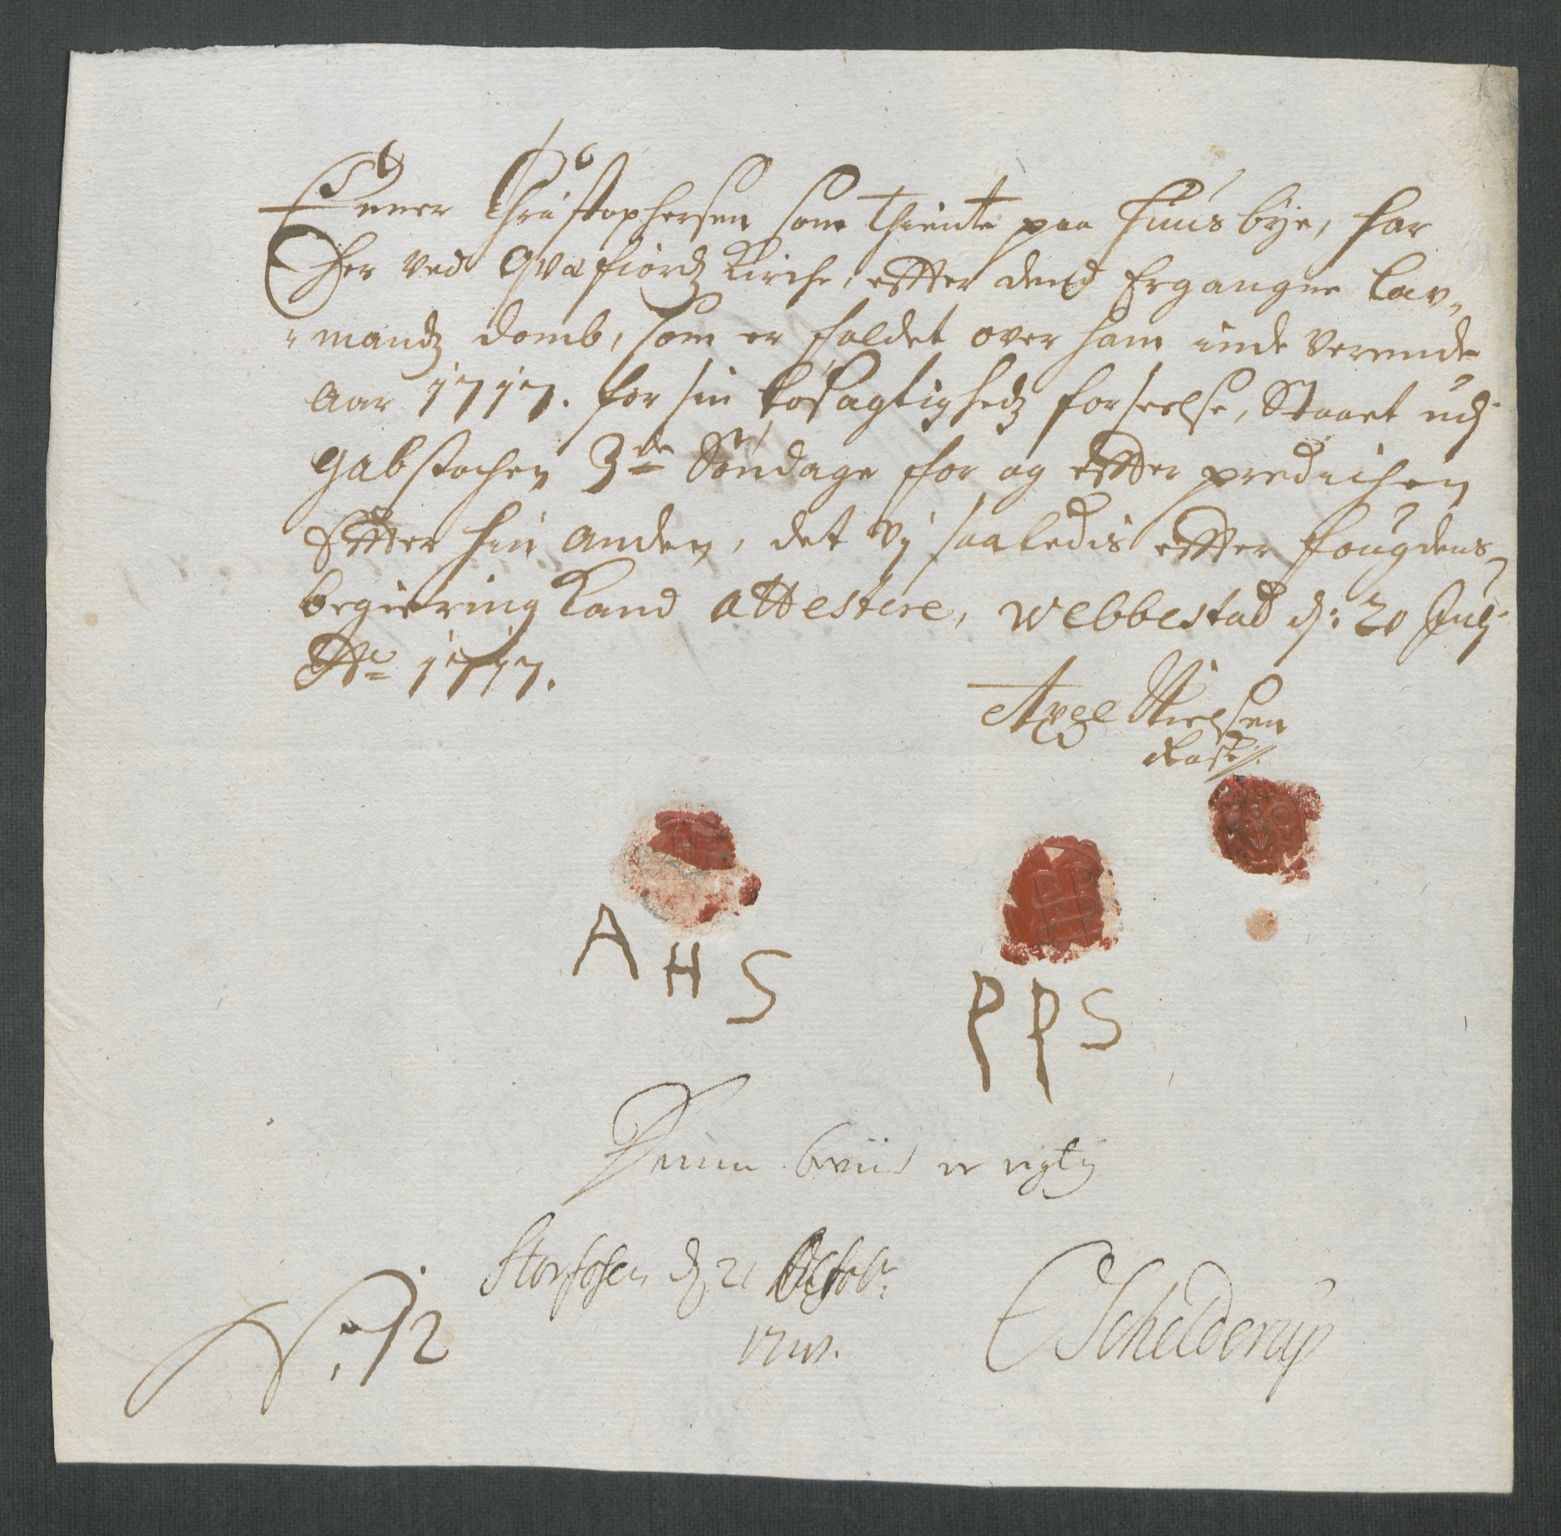 Ener Christophersen som thiente paa Huusbÿe, har
her ved Qvæfiordz Kirche, effter dend Ergangne Lav-
mandz domb, som er faldet over ham inde verende
aar 1717. for sin Løsagtighedz forseelse, Staaet udj
gabstochen 3de Søndage for og effter predichen
Effter hin anden, det vj saaledis effter fougdens
begiering Kand attestere, Webbestad d: 20 Julj
Ao 1717.
Axel Nielsen
Rask
A H S
P P S
Denne beviis er rigtig
Storfosen d 21 Octobr:
1717.
No: 12
Schelderup